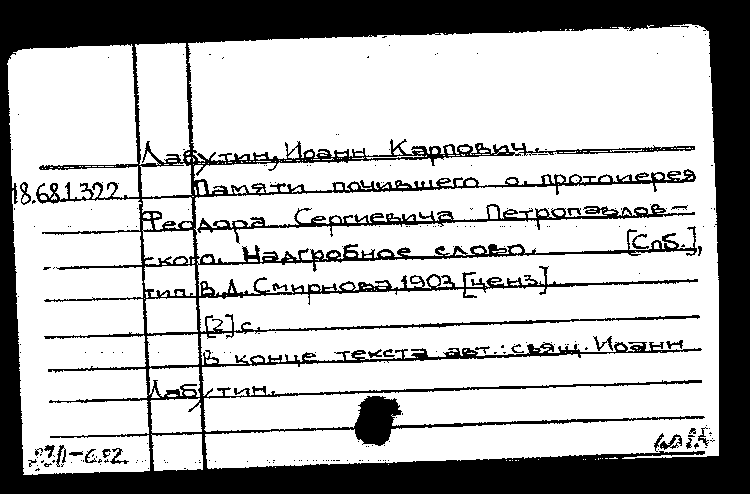 Лабутин, Иоанн Карпович.
18.681.322. Памяти почившего о. протоиерея
Феодора Сергиевича Петропавлов-
ского. Надгробное слово. [Спб.],
тип. В.Д. Смирнова, 1903 [ценз].
[2] с.
В конце текста авт.: свящ. Иоанн
Лабутин.